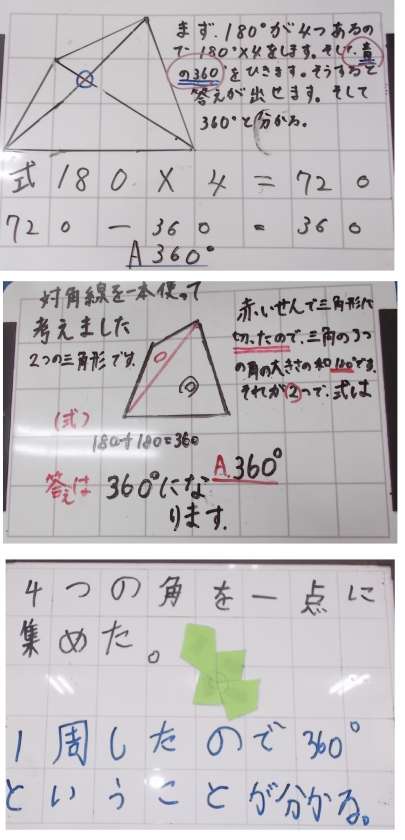 まず、180°が4つあるの
で180°×4をします。そして、青
の360°をひきます。そうすると
答えが出せます。そして
360°と分かる。
式 180×4=720
720-360=360
A 360°
対角線を一本使って
考えました
2つの三角形です。
赤いせんで三角形に
切ったので、三角の3つ
の角の大きさの和180°です。
それが②つで、式は
(式)
180+180=360
A.360°
答えは 360°にな
ります。
4つの角を一点に
集めた。
1周したので360°
ということが分かる。